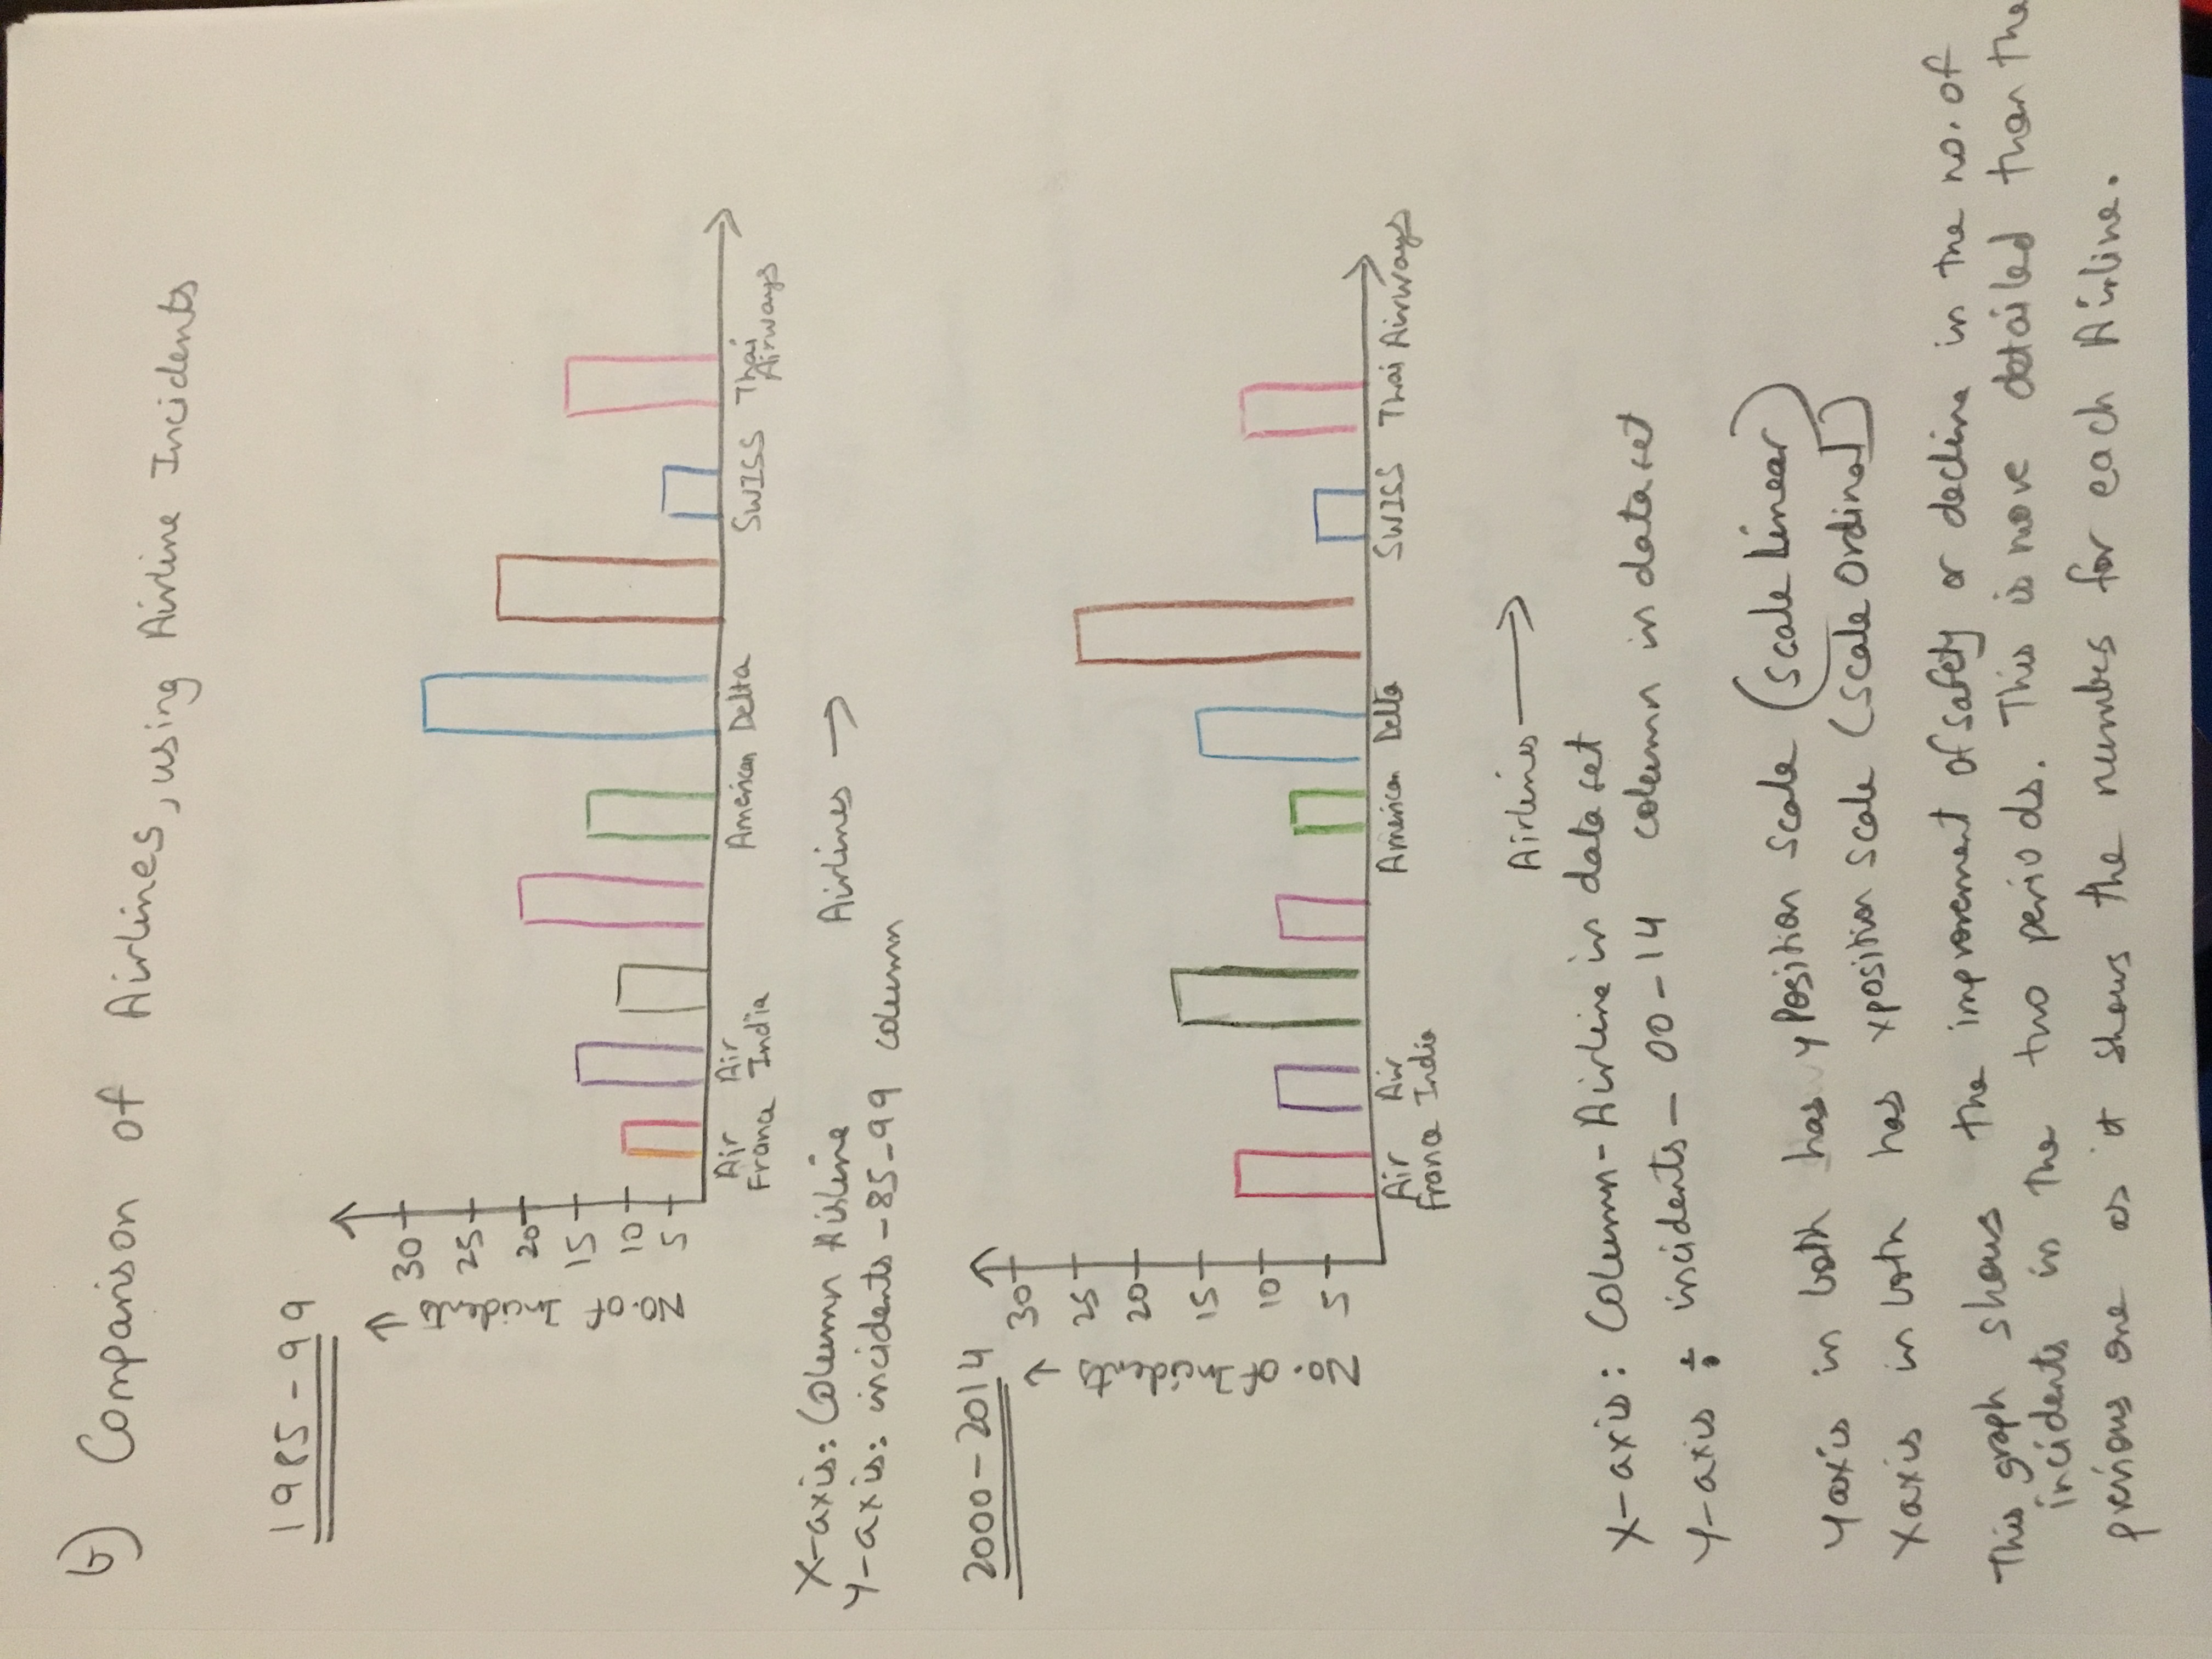 b) Comparison of Airlines, using Airline Incidents
1985-99
No. of Incidents →
30
25
20
15
10
5
Air France
Air India
American
Delta
SWISS
Thai Airways
X-axis: Column Airline
Airlines →
Y-axis: incidents-85-99 column
2000-2014
No. of Incidents →
30
25
20
15
10
5
Air France
Air India
American
Delta
SWISS
Thai Airways
Airlines →
X-axis: Column-Airline in dataset
Y-axis: incidents-00-14 column in dataset
Yaxis in both has yPosition scale (scale Linear)
Xaxis in both has xposition scale (scale Ordinal)
This graph shows the improvement of safety or decline in the no. of
incidents in the two periods. This is more detailed than the
previous one as it shows the number for each Airline.